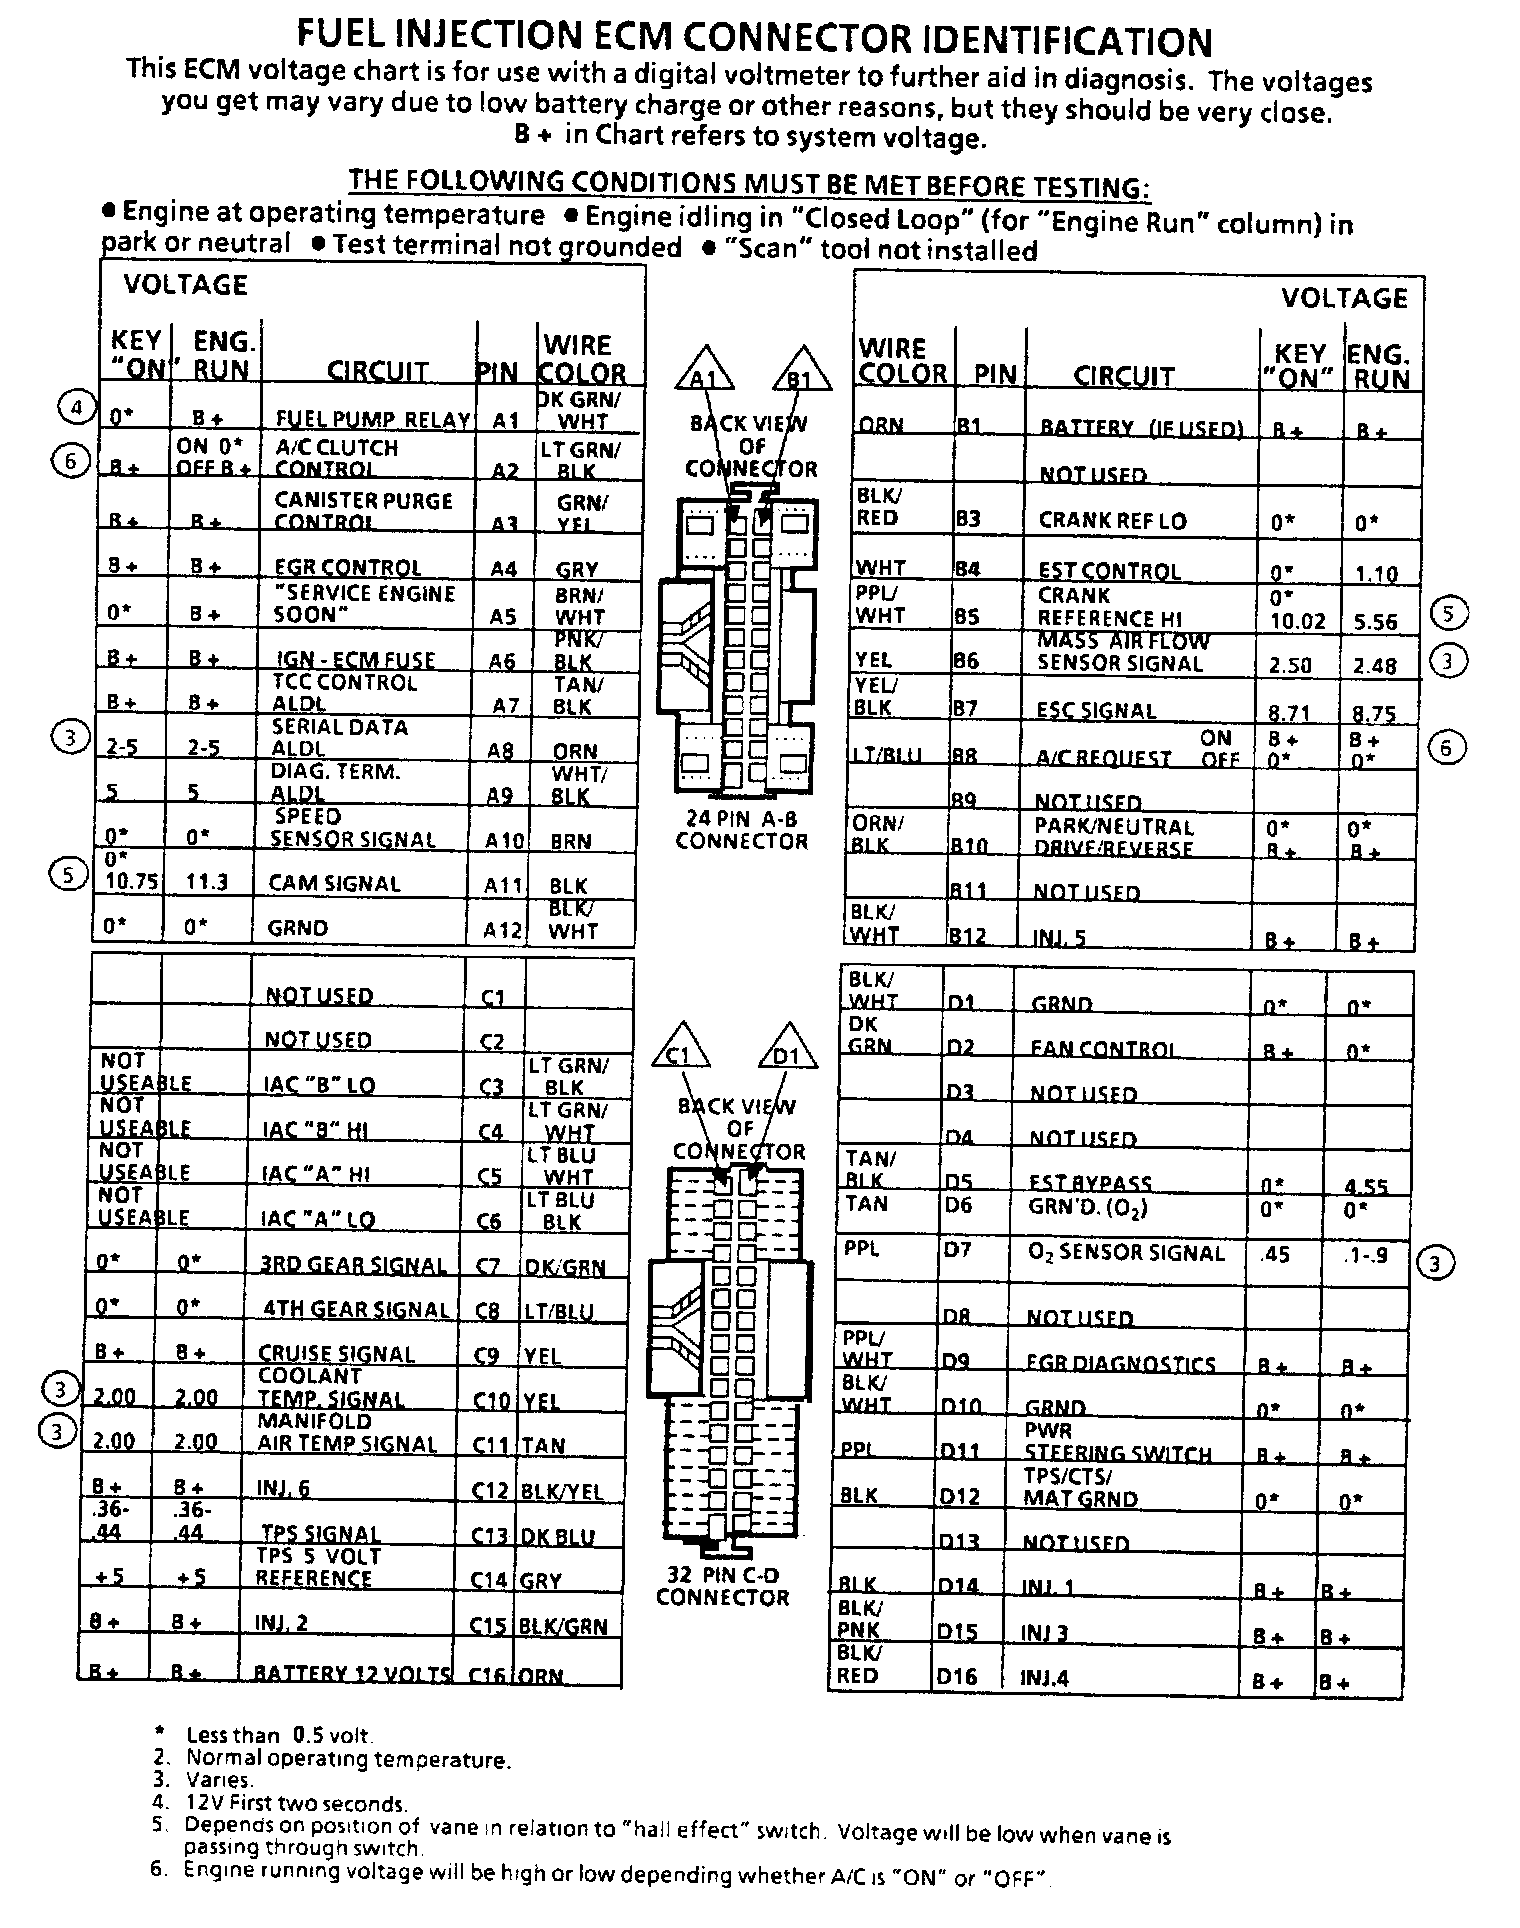 FUEL INJECTION ECM CONNECTOR IDENTIFICATION
This ECM voltage chart is for use with a digital voltmeter to further aid in diagnosis. The voltages
you get may vary due to low battery charge or other reasons, but they should be very close.
B + in Chart refers to system voltage.
THE FOLLOWING CONDITIONS MUST BE MET BEFORE TESTING:
● Engine at operating temperature ● Engine idling in "Closed Loop" (for "Engine Run" column) in
park or neutral ● Test terminal not grounded ● "Scan" tool not installed
VOLTAGE
KEY "ON" ENG. RUN CIRCUIT PIN WIRE COLOR
4 0* B+ FUEL PUMP RELAY A1 DK GRN/ WHT
6 B+ ON 0* OFF B+ A/C CLUTCH CONTROL A2 LT GRN/ BLK
B+ B+ CANISTER PURGE CONTROL A3 GRN/ YEL
B+ B+ EGR CONTROL A4 GRY
0* B+ "SERVICE ENGINE SOON" A5 BRN/ WHT
B+ B+ IGN - ECM FUSE A6 PNK/ BLK
B+ B+ TCC CONTROL ALDL A7 TAN/ BLK
3 2-5 2-5 SERIAL DATA ALDL A8 ORN
5 5 DIAG. TERM. ALDL A9 WHT/ BLK
0* 0* SPEED SENSOR SIGNAL A10 BRN
5 0* 10.75 11.3 CAM SIGNAL A11 BLK
0* 0* GRND A12 BLK/ WHT
A1 B1
BACK VIEW
OF
CONNECTOR
24 PIN A-B
CONNECTOR
VOLTAGE
WIRE COLOR PIN CIRCUIT KEY "ON" ENG. RUN
ORN B1 BATTERY (IF USED) B+ B+
NOT USED
BLK/ RED B3 CRANK REF LO 0* 0*
WHT B4 EST CONTROL 0* 1.10
PPL/ WHT B5 CRANK REFERENCE HI 0* 10.02 5.56 5
YEL B6 MASS AIR FLOW SENSOR SIGNAL 2.50 2.48 3
YEL/ BLK B7 ESC SIGNAL 8.71 8.75
LT/BLU B8 A/C REQUEST ON OFF B+ 0* B+ 0* 6
B9 NOT USED
ORN/ BLK B10 PARK/NEUTRAL DRIVE/REVERSE 0* B+ 0* B+
B11 NOT USED
BLK/ WHT B12 INJ. 5 B+ B+
NOT USED C1
NOT USED C2
NOT USEABLE IAC "B" LO C3 LT GRN/ BLK
NOT USEABLE IAC "B" HI C4 LT GRN/ WHT
NOT USEABLE IAC "A" HI C5 LT BLU WHT
NOT USEABLE IAC "A" LO C6 LT BLU BLK
0* 0* 3RD GEAR SIGNAL C7 DK/GRN
0* 0* 4TH GEAR SIGNAL C8 LT/BLU
B+ B+ CRUISE SIGNAL C9 YEL
3 2.00 2.00 COOLANT TEMP. SIGNAL C10 YEL
3 2.00 2.00 MANIFOLD AIR TEMP SIGNAL C11 TAN
B+ B+ INJ. 6 C12 BLK/YEL
.36- .44 .36- .44 TPS SIGNAL C13 DK BLU
+5 +5 TPS 5 VOLT REFERENCE C14 GRY
B+ B+ INJ. 2 C15 BLK/GRN
B+ B+ BATTERY 12 VOLTS C16 ORN
C1 D1
BACK VIEW
OF
CONNECTOR
32 PIN C-D
CONNECTOR
BLK/ WHT D1 GRND 0* 0*
DK GRN D2 FAN CONTROL B+ 0*
D3 NOT USED
D4 NOT USED
TAN/ BLK D5 EST BYPASS 0* 4.55
TAN D6 GRN'D. (O2) 0* 0*
PPL D7 O2 SENSOR SIGNAL .45 .1-.9 3
D8 NOT USED
PPL/ WHT D9 EGR DIAGNOSTICS B+ B+
BLK/ WHT D10 GRND 0* 0*
PPL D11 PWR STEERING SWITCH B+ B+
BLK D12 TPS/CTS/ MAT GRND 0* 0*
D13 NOT USED
BLK D14 INJ. 1 B+ B+
BLK/ PNK D15 INJ 3 B+ B+
BLK/ RED D16 INJ.4 B+ B+
* Less than 0.5 volt.
2. Normal operating temperature.
3. Varies.
4. 12V First two seconds.
5. Depends on position of vane in relation to "hall effect" switch. Voltage will be low when vane is
passing through switch.
6. Engine running voltage will be high or low depending whether A/C is "ON" or "OFF".